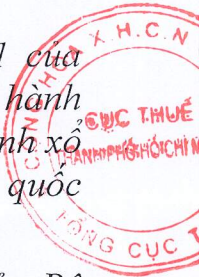 của
hành
nh xổ
quốc
X.H.C.N
CỤC THUẾ
THÀNH PHỐ HỒ CHÍ M
TỔNG CỤC T